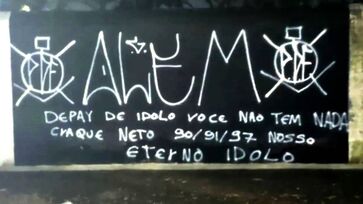 ALEM
DEPAY DE IDOLO VOCE NÃO TEM NADA
CRAQUE NETO 90/91/97 NOSSO
ETERNO IDOLO